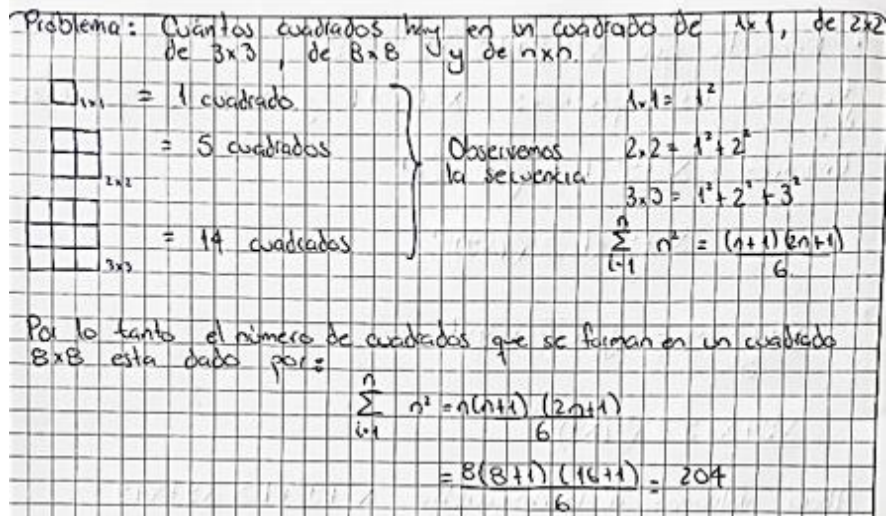 Problema: Cuántos cuadrados hay en un cuadrado de 1x1, de 2x2
de 3x3, de 8x8 y de nxn.
1x1 = 1 cuadrado
1x1 = 1²
2x2 = 5 cuadrados
Observemos
la secuencia
2x2 = 1² + 2²
3x3 = 1² + 2² + 3²
3x3 = 14 cuadrados
n Σ i=1 n² = (n+1)(2n+1) / 6
Por lo tanto el número de cuadrados que se forman en un cuadrado
8x8 esta dado por:
n Σ i=1 n² = n(n+1) (2n+1) / 6
= 8(8+1) (16+1) / 6 = 204